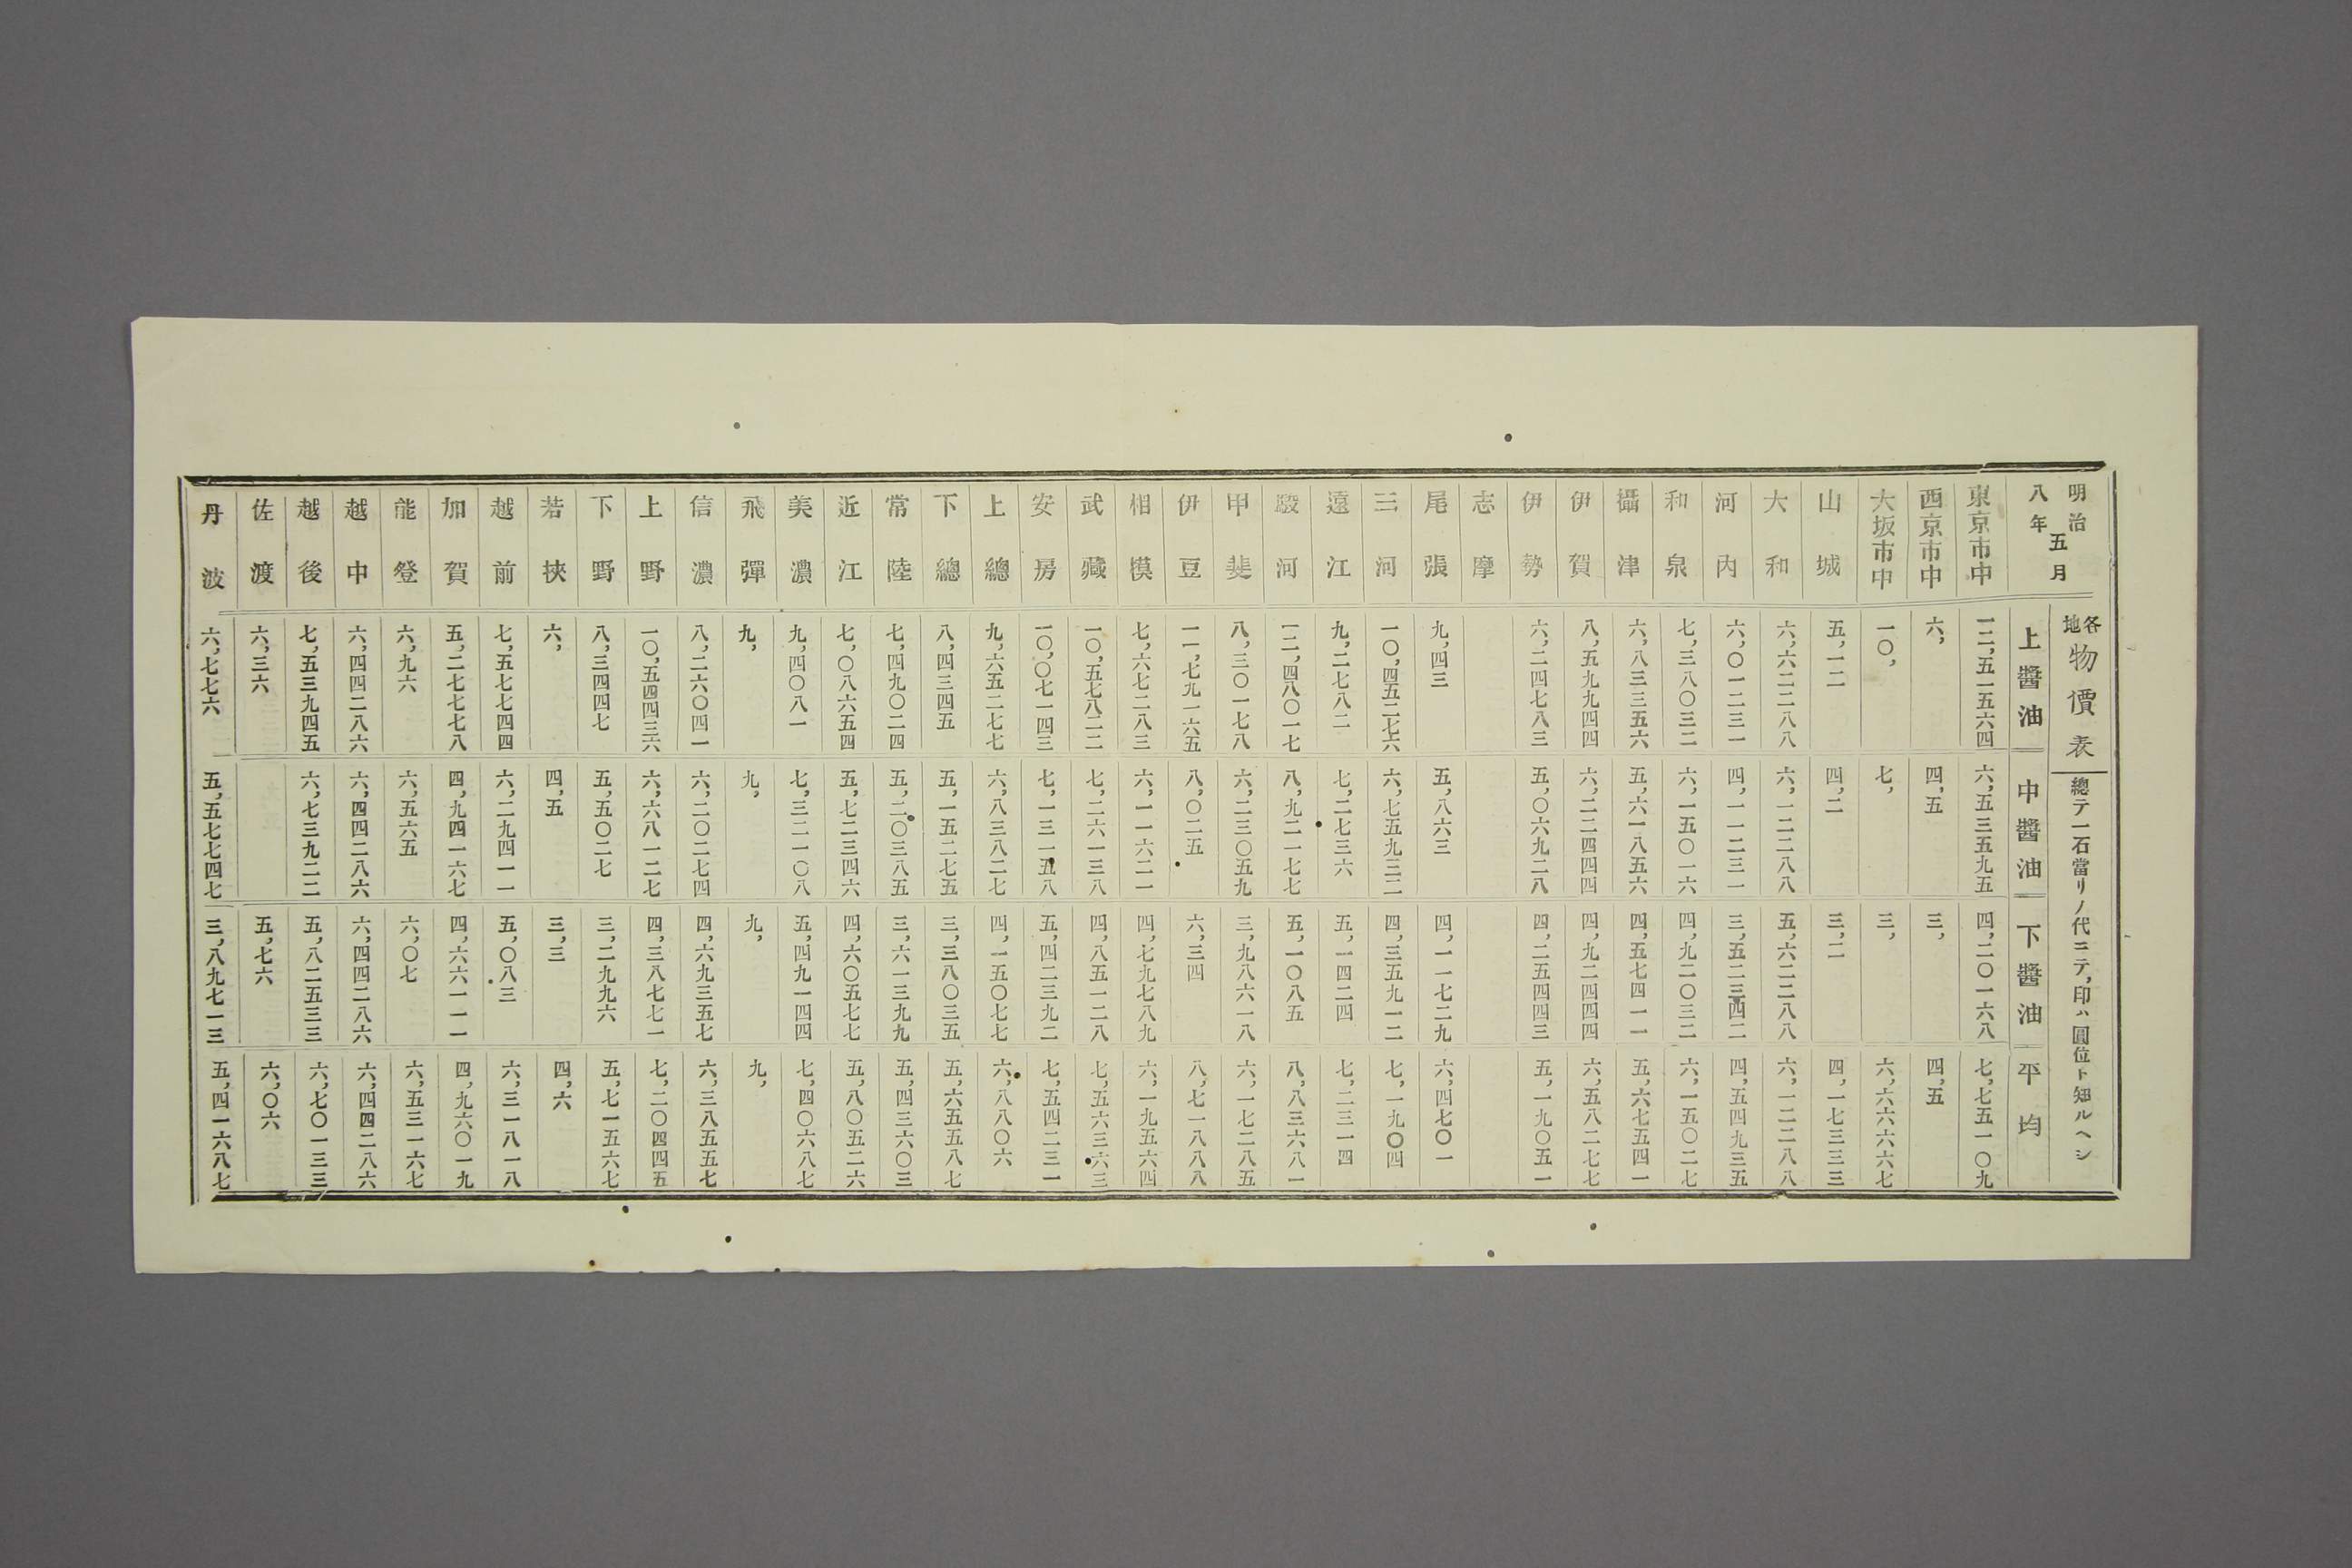 明治八年五月
各地物價表 總テ一石當リノ代ニテ,印ハ圓位ト知ルヘシ
上醬油 中醬油 下醬油 平均
東京市中 一二,五一五六四 六,五三五九五 四,二〇一六八 七,七五一〇九
西京市中 六, 四,五 三, 四,五
大坂市中 一〇, 七, 三, 六,六六六六七
山城 五,一二 四,二 三,二 四,一七三三三
大和 六,六二二八八 六,一二二八八 五,六二二八八 六,一二二八八
河內 六,〇一二三一 四,一一二三一 三,五二三四二 四,五四九三五
和泉 七,三八〇三二 六,一五〇一六 四,九二〇三二 六,一五〇二七
攝津 六,八三三五六 五,六一八五六 四,五七四一一 五,六七五四一
伊賀 八,五九九四四 六,二二四四四 四,九二四四四 六,五八二七七
伊勢 六,二四七八三 五,〇六九二八 四,二五四四三 五,一九〇五一
志摩
尾張 九,四三 五,八六三 四,一一七二九 六,四七〇一
三河 一〇,四五二七六 六,七五九三二 四,三五九一二 七,一九〇四
遠江 九,二七八二 七,二七三六 五,一四二四 七,二三一四
駿河 一二,四八〇一七 八,九二一七七 五,一〇八五 八,八三六八一
甲斐 八,三〇一七八 六,二三〇五九 三,九八六一八 六,一七二八五
伊豆 一一,七九一六五 八,〇二五 六,三四 八,七一八八八
相摸 七,六七二八三 六,一一六二一 四,七九七八九 六,一九五六四
武藏 一〇,五七八二二 七,二六一三八 四,八五一二八 七,五六三六三
安房 一〇,〇七一四三 七,一三一五八 五,四二三九二 七,五四二三一
上總 九,六五二七七 六,八三八二七 四,一五〇七七 六,八八〇六
下總 八,四三四五 五,一五二七五 三,三八〇三五 五,六五五八七
常陸 七,四九〇二四 五,二〇三八五 三,六一三九九 五,四三六〇三
近江 七,〇八六五四 五,七二三四六 四,六〇五七七 五,八〇五二六
美濃 九,四〇八一 七,三二一〇八 五,四九一四四 七,四〇六八七
飛彈 九, 九, 九, 九,
信濃 八,二六〇四一 六,二〇二七四 四,六九三五七 六,三八五五七
上野 一〇,五四四三六 六,六八一二七 四,三八七七一 七,二〇四四五
下野 八,三四四七 五,五〇二七 三,二九九六 五,七一五六七
若挾 六, 四,五 三,三 四,六
越前 七,五七七四四 六,二九四一一 五,〇八三 六,三一八一八
加賀 五,二七七七八 四,九四一六七 四,六六一一一 四,九六〇一九
能登 六,九六 六,五六五 六,〇七 六,五三一六七
越中 六,四四二八六 六,四四二八六 六,四四二八六 六,四四二八六
越後 七,五三九四五 六,七三九二二 五,八二五三三 六,七〇一三三
佐渡 六,三六 五,七六 六,〇六
丹波 六,七七六 五,五七七四七 三,八九七一三 五,四一六八七